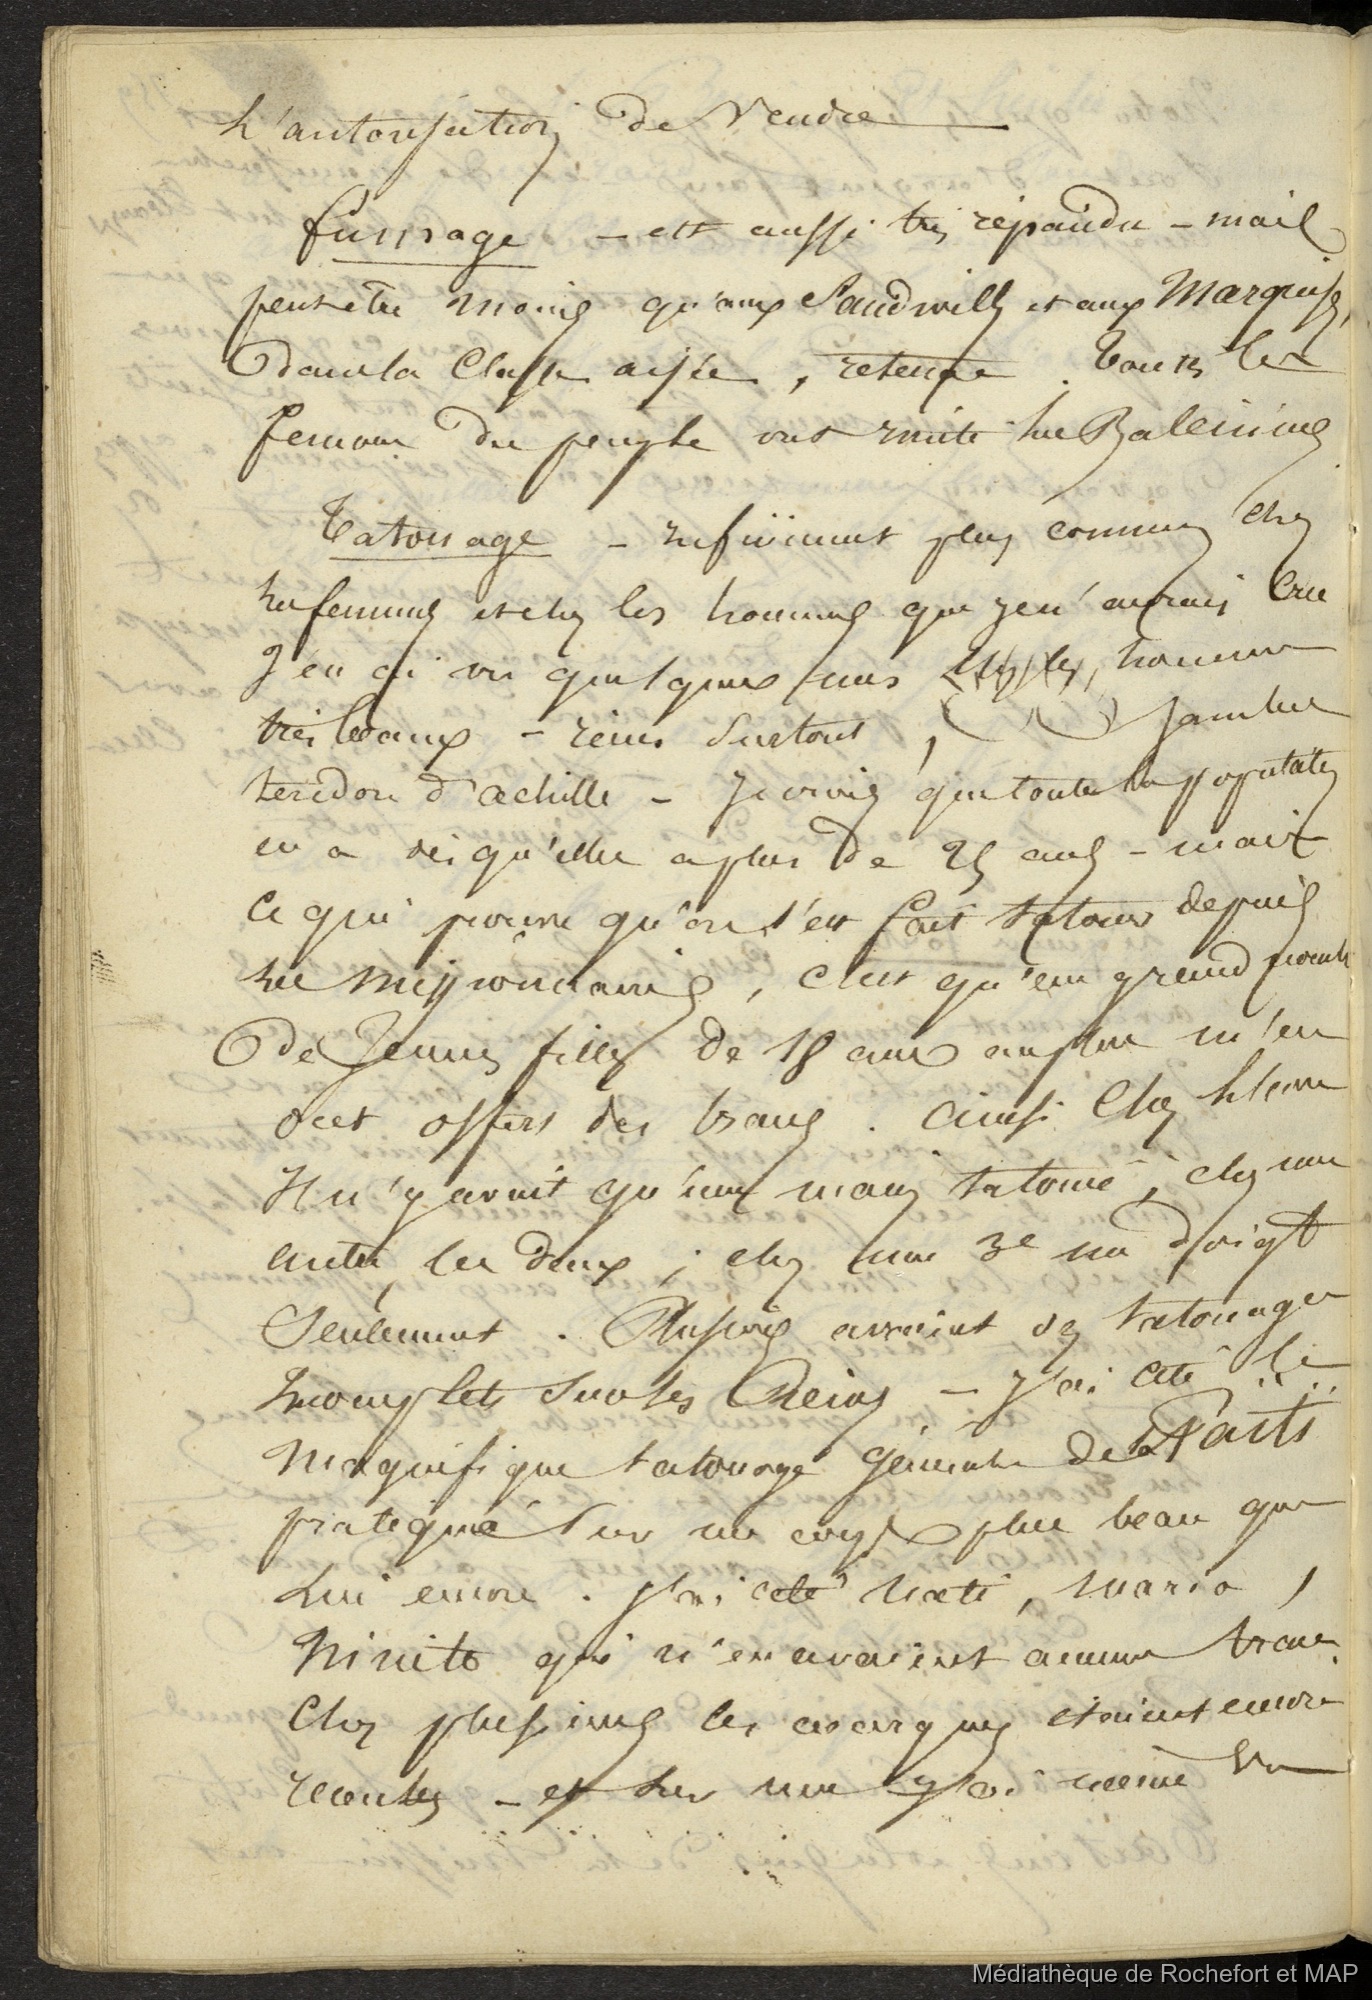 L'autorisation de vendre
fumage - est aussi très répandu - mais
peut être moins qu'aux Sandwichs et aux Marquises,
Dans la classe aisée, retenue. Toutes les
femmes du peuple ont imité les Baleiniers
Tatouage - infiniment plus commun chez
les femmes et chez les hommes que je n'aurais cru
J'en ai vu quelques uns chez les hommes
très beaux - reins surtout, jambes
tendon d'achille - Je crois que toute la population
en a dès qu'elle a plus de 25 ans - mais
ce qui prouve qu'on s'est fait tatouer depuis
les missionnaires, c'est qu'un grand nombre
De jeunes filles de 18 ans au plus m'en
ont offert des traces. ainsi chez
Il n'y avait qu'une main tatouée, chez une
autre, les deux ; chez une 3e un doigt
Seulement. Plusieurs avaient des tatouages
incomplets sur les Reins - J'ai cité le
magnifique tatouage général de
pratiqué sur un corps plus beau que
lui encore. J'ai cité
qui n'en avaient aucune trace.
Chez plusieurs les marques étaient encore
récentes - et sur une j'ai même vu
Médiathèque de Rochefort et MAP